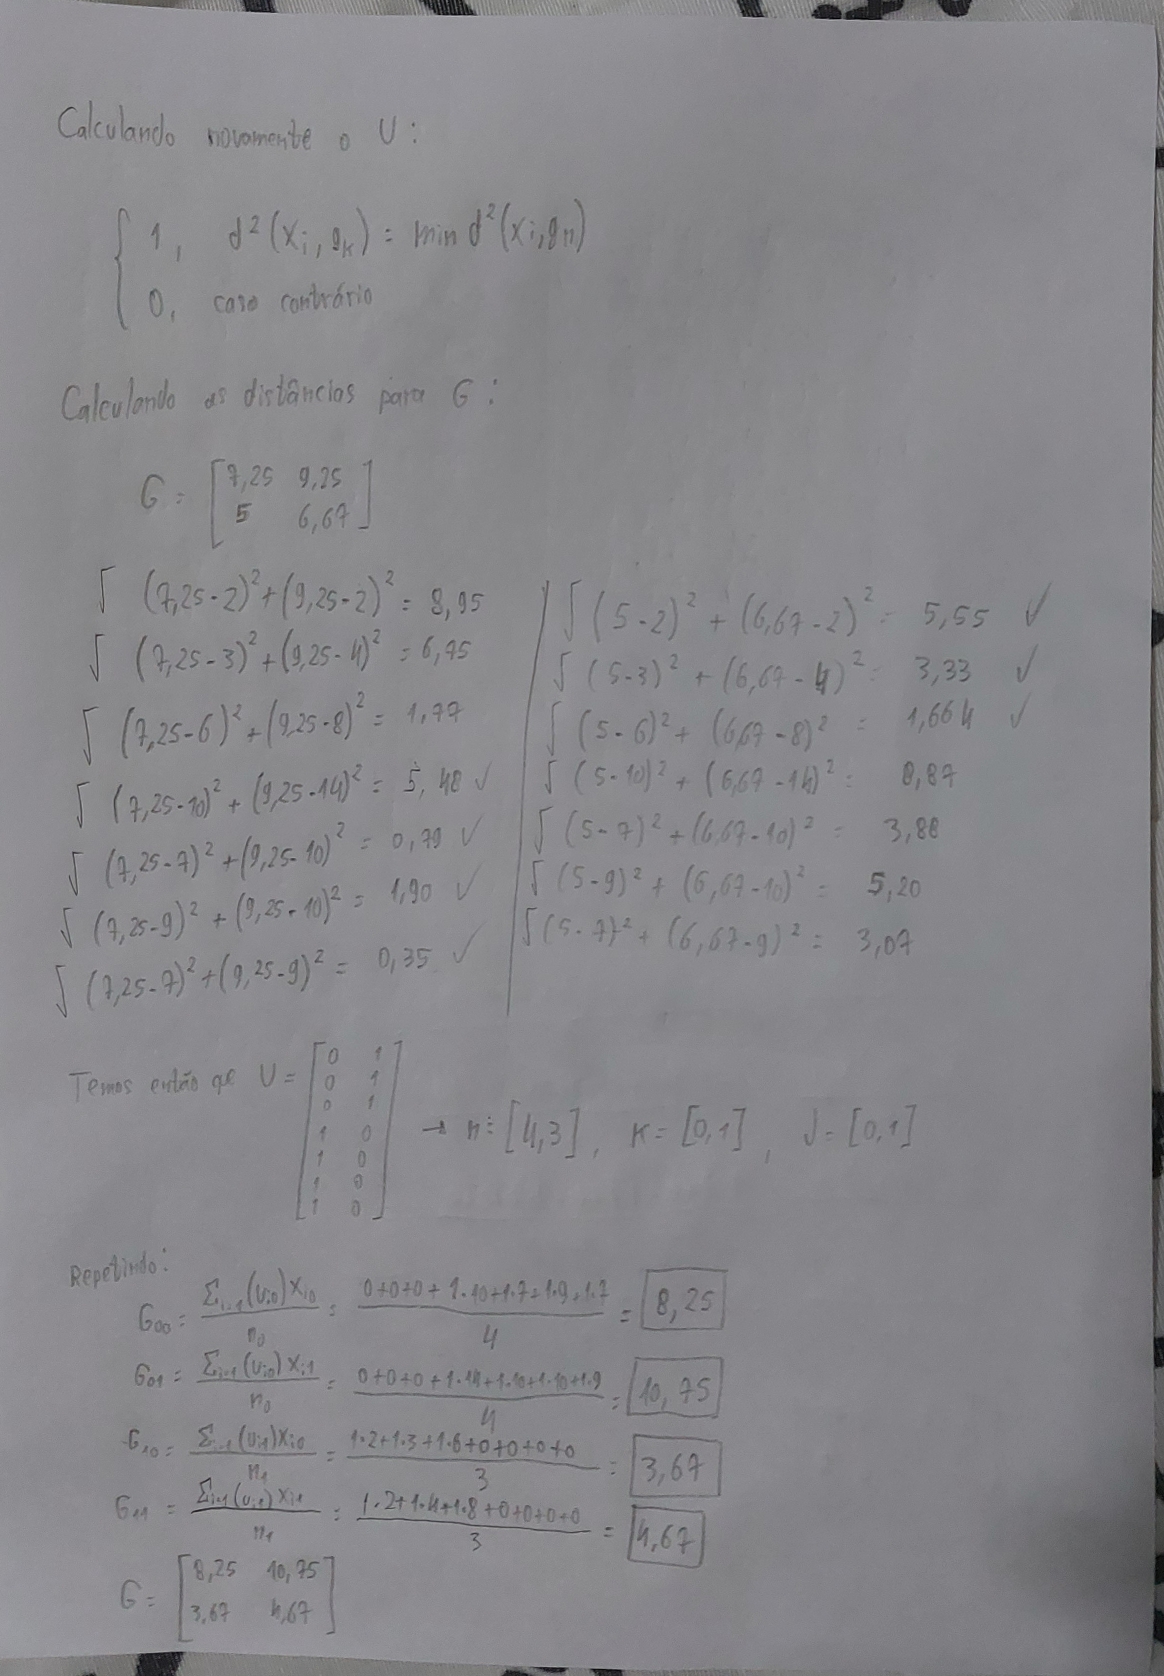 Calculando novamente o U:
{ 1, d²(xi, gk) = min d²(xi, gn)
0, caso contrário
Calculando as distâncias para G:
G = [7,25 9,25
5 6,67]
√ (7,25-2)²+(9,25-2)² = 8,95
√ (7,25-3)²+(9,25-4)² = 6,75
√ (7,25-6)²+(9,25-8)² = 1,77
√ (7,25-10)²+(9,25-14)² = 5,48 ✓
√ (7,25-7)²+(9,25-10)² = 0,79 ✓
√ (7,25-9)²+(9,25-10)² = 1,90 ✓
√ (7,25-7)²+(9,25-9)² = 0,35 ✓
√ (5-2)² + (6,67-2)² = 5,55 ✓
√ (5-3)² + (6,67-4)² = 3,33 ✓
√ (5-6)² + (6,67-8)² = 1,664 ✓
√ (5-10)² + (6,67-14)² = 8,87
√ (5-7)² + (6,67-10)² = 3,88
√ (5-9)² + (6,67-10)² = 5,20
√ (5-7)² + (6,67-9)² = 3,07
Temos então que U = [0 1
0 1
0 1
1 0
1 0
1 0
1 0] → n = [4,3], K = [0,1], J = [0,1]
Repetindo:
G00 = Σi=1(ui0)xi0 / n0 = 0+0+0+1·10+1·7+1·9+1·7 / 4 = 8,25
G01 = Σi=1(ui0)xi1 / n0 = 0+0+0+1·14+1·10+1·10+1·9 / 4 = 10,75
G10 = Σi=1(ui1)xi0 / n1 = 1·2+1·3+1·6+0+0+0+0 / 3 = 3,67
G11 = Σi=1(ui1)xi1 / n1 = 1·2+1·4+1·8+0+0+0+0 / 3 = 4,67
G = [8,25 10,75
3,67 4,67]